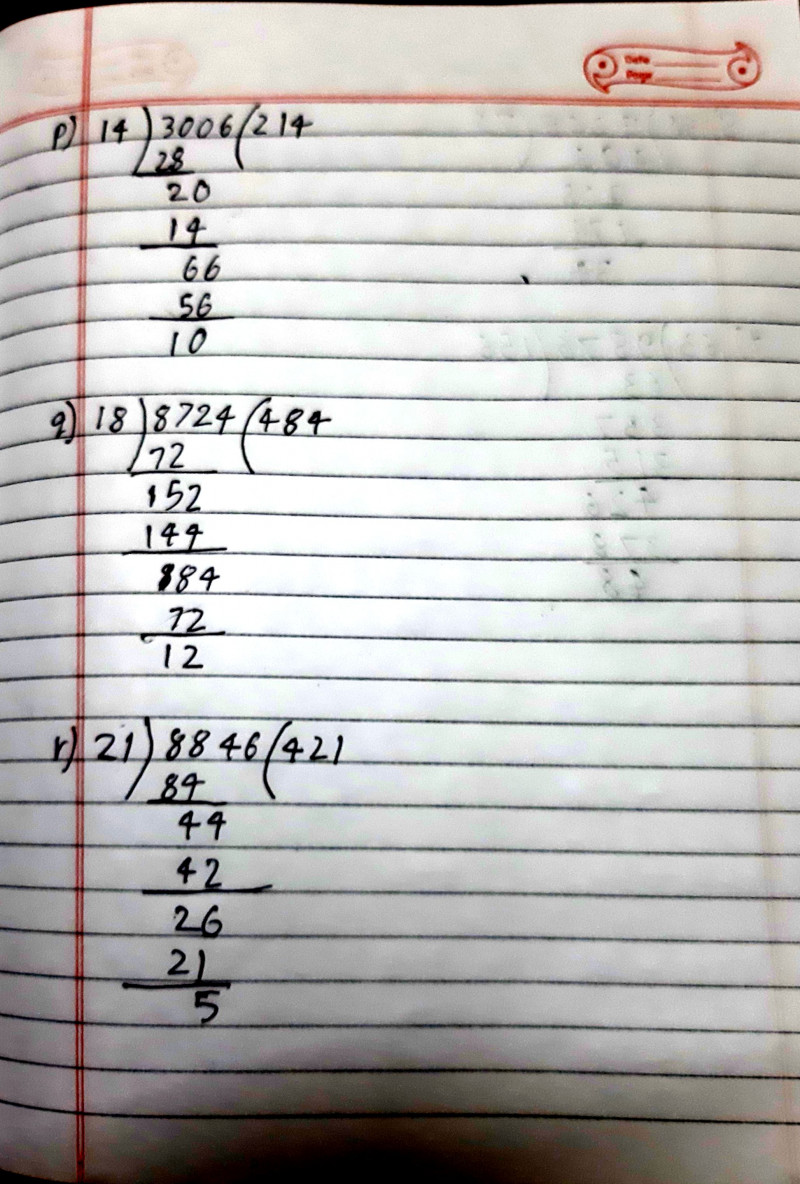 Date
Page
p) 14 ) 3006 ( 214
28
20
14
66
56
10
q) 18 ) 8724 ( 484
72
152
144
84
72
12
r) 21 ) 8846 ( 421
84
44
42
26
21
5